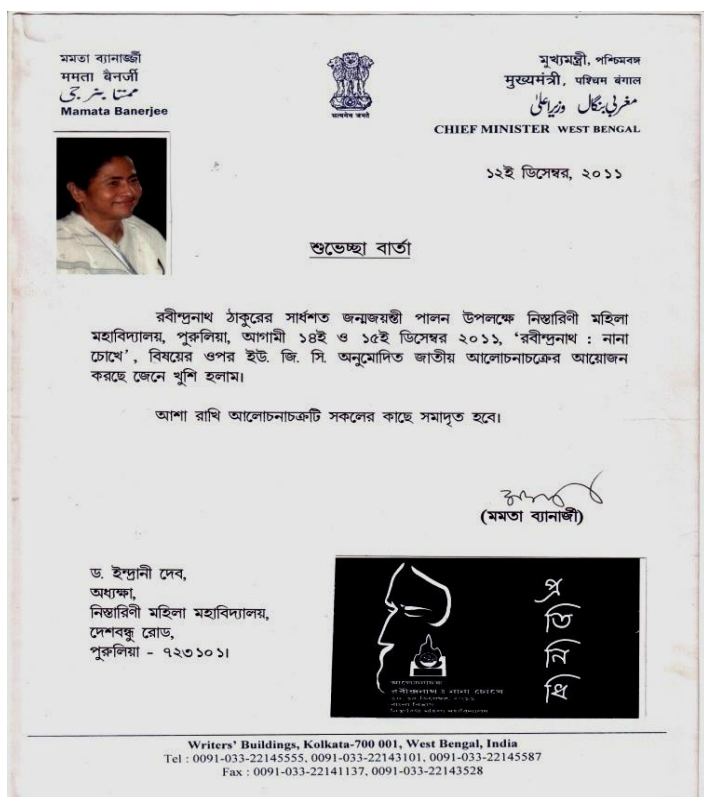 মমতা ব্যানার্জ্জী
ममता बैनर्जी
ممتا بنرجی
Mamata Banerjee
सत्यमेव जयते
মুখ্যমন্ত্রী, পশ্চিমবঙ্গ
मुख्यमंत्री, पश्चिम बंगाल
مغربی بنگال وزیراعلیٰ
CHIEF MINISTER WEST BENGAL
১২ই ডিসেম্বর, ২০১১
শুভেচ্ছা বার্তা
রবীন্দ্রনাথ ঠাকুরের সার্ধশত জন্মজয়ন্তী পালন উপলক্ষে নিস্তারিণী মহিলা
মহাবিদ্যালয়, পুরুলিয়া, আগামী ১৪ই ও ১৫ই ডিসেম্বর ২০১১, ‘রবীন্দ্রনাথ : নানা
চোখে’, বিষয়ের ওপর ইউ. জি. সি. অনুমোদিত জাতীয় আলোচনাচক্রের আয়োজন
করছে জেনে খুশি হলাম।
আশা রাখি আলোচনাচক্রটি সকলের কাছে সমাদৃত হবে।
(মমতা ব্যানার্জী)
ড. ইন্দ্রানী দেব,
অধ্যক্ষা,
নিস্তারিণী মহিলা মহাবিদ্যালয়,
দেশবন্ধু রোড,
পুরুলিয়া - ৭২৩১০১।
প্র
তি
নি
ধি
আলোচনাচক্র
রবীন্দ্রনাথ : নানা চোখে
বাংলা বিভাগ
নিস্তারিণী মহিলা মহাবিদ্যালয়
Writers' Buildings, Kolkata-700 001, West Bengal, India
Tel : 0091-033-22145555, 0091-033-22143101, 0091-033-22145587
Fax : 0091-033-22141137, 0091-033-22143528